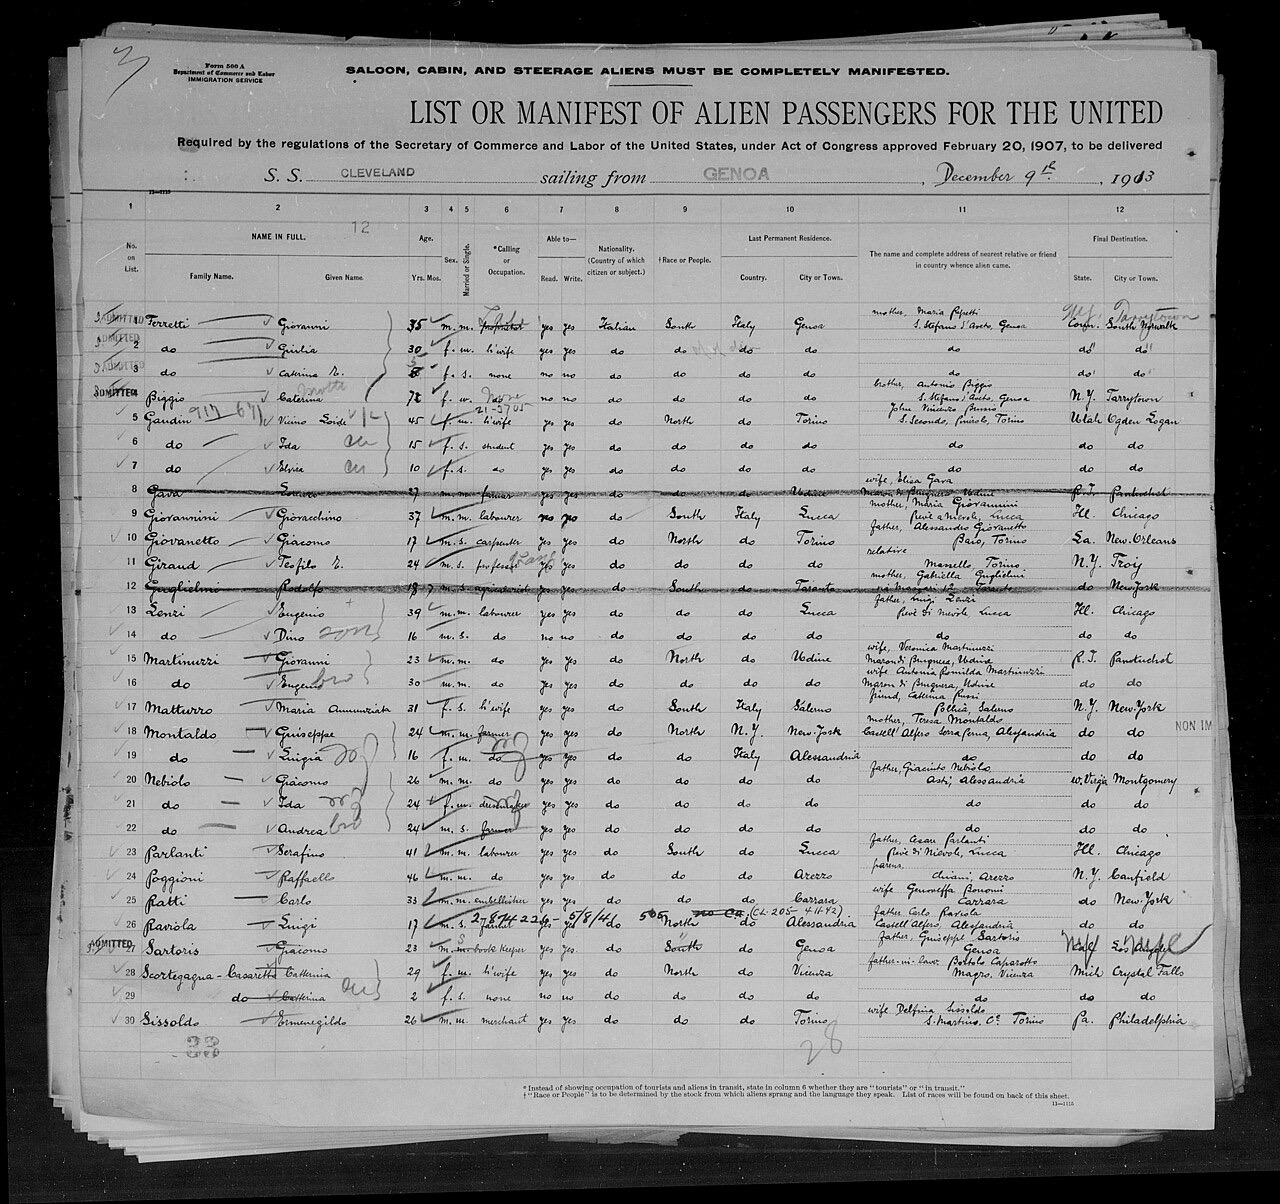 3
Form 500 A
Department of Commerce and Labor
IMMIGRATION SERVICE
SALOON, CABIN, AND STEERAGE ALIENS MUST BE COMPLETELY MANIFESTED.
LIST OR MANIFEST OF ALIEN PASSENGERS FOR THE UNITED
Required by the regulations of the Secretary of Commerce and Labor of the United States, under Act of Congress approved February 20, 1907, to be delivered
S. S. CLEVELAND sailing from GENOA, December 9th, 1913
1 2 3 4 5 6 7 8 9 10 11 12
12
No. on List. NAME IN FULL. Family Name. Given Name. Age. Yrs. Mos. Sex. Married or Single. *Calling or Occupation. Able to— Read. Write. Nationality. (Country of which citizen or subject.) †Race or People. Last Permanent Residence. Country. City or Town. The name and complete address of nearest relative or friend in country whence alien came. Final Destination. State. City or Town.
ADMITTED 1 Ferretti Giovanni 35 m. m. yes yes Italian South Italy Genoa mother, Maria S. Stefano d'Aveto, Genoa Conn. South Norwalk Tarrytown
ADMITTED 2 do Giulia 30 f. m. h'wife yes yes do do do do do do do
ADMITTED 3 do Caterina E. f. s. none no no do do do do do do do
ADMITTED Biggio Caterina 72 f. w. None no no do do do do brother, Antonio Biggio S. Stefano d'Aveto, Genoa N.Y. Tarrytown
5 Gaudin Vicino Loide 45 f. m. h'wife yes yes do North do Torino John Vincenzo S. Secondo, Pinerolo, Torino Utah Ogden Logan
6 do Ida 15 f. s. student yes yes do do do do do do do
7 do Elvira 10 f. s. do yes yes do do do do do do do
8 Gava 27 m. m. farmer yes yes do do do Udine wife, Elisa Gava Udine R.I. Pawtuchet
9 Giovannini Giovacchino 37 m. m. labourer no no do South Italy Lucca mother, Maria Giovannini Pieve a Nievole, Lucca Ill. Chicago
10 Giovanetto Giacomo 17 m. s. carpenter yes yes do North do Torino father, Alessandro Giovanetto Baio, Torino La. New-Orleans
11 Giraud Teofilo E. 24 m. s. professor yes yes do do do do relative Massello, Torino N.Y. Troy
12 Guglielmi Rodolfo 18 7 m. s. agriculturist yes yes do South do Taranto mother, Gabriella Guglielmi Taranto do New York
13 Lenzi Eugenio 39 m. m. labourer yes yes do do do Lucca father, Luigi Lenzi Pieve di Nievole, Lucca Ill. Chicago
14 do Dino son 16 m. s. do no no do do do do do do do
15 Martinuzzi Giovanni 23 m. m. do yes yes do North do Udine wife, Veronica Martinuzzi Udine R.I. Pawtuchet
16 do Eugenio bro 30 m. m. do yes yes do do do do wife Antonia Romilda Martinuzzi Udine do do
17 Matturro Maria Annunziata 31 f. s. h'wife yes yes do South Italy Salerno friend, Caterina Salerno N.Y. New-York
18 Montaldo Guiseppe 24 m. m. farmer yes yes do North N.Y. New-York mother, Teresa Montaldo Castell'Alfero, Alessandria do do
19 do Luigia 16 f. m. do yes yes do do Italy Alessandria do do do
20 Nebiolo Giacomo 26 m. m. do yes yes do do do do father, Giacinto Nebiolo Asti, Alessandria W. Virga Montgomery
21 do Ida 24 f. m. dressmaker yes yes do do do do do do do
22 do Andrea bro 24 m. s. farmer yes yes do do do do do do do
23 Parlanti Serafino 41 m. m. labourer yes yes do South do Lucca father, Cesare Parlanti Pieve di Nievole, Lucca Ill. Chicago
24 Poggioni Raffaello 46 m. m. do yes yes do do do Arezzo parens Chiani, Arezzo N.Y. Canfield
25 Ratti Carlo 33 m. m. yes yes do do do Carrara wife Genoveffa Bononi Carrara do New-York
26 Raviola Luigi 17 m. s. farmer do North do Alessandria father Carlo Raviola Castell'Alfero, Alessandria do do
ADMITTED 27 Sartoris Giacomo 23 m. book keeper yes yes do South do Genoa father, Guiseppe Sartoris Genoa
28 Scortegagna-Casaretta Catterina 29 f. m. h'wife yes yes do North do Vicenza father-in-law Bortolo Caparotto Magrè, Vicenza Mich Crystal Falls
29 do Catterina 2 f. s. none no no do do do do do do do
30 Sissoldo Ermenegildo 26 m. m. merchant yes yes do do do Torino wife Delfina Sissoldo S. Martino, Torino Pa. Philadelphia
NON IM
33
28
* Instead of showing occupation of tourists and aliens in transit, state in column 6 whether they are "tourists" or "in transit."
† "Race or People" is to be determined by the stock from which aliens sprang and the language they speak. List of races will be found on back of this sheet.
11—1115